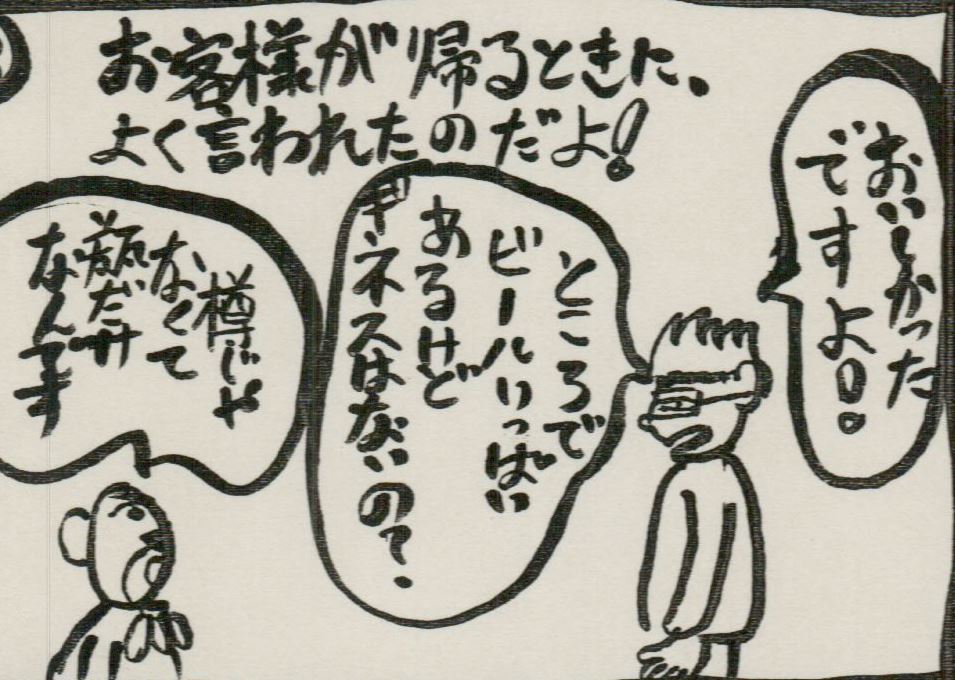 お客様が帰るときに、
よく言われたのだよ!
おいしかった
ですよ!。
ところで
ビールいっぱい
あるけど
ギネスはないので。
樽じゃ
なくて
瓶だけ
なんです